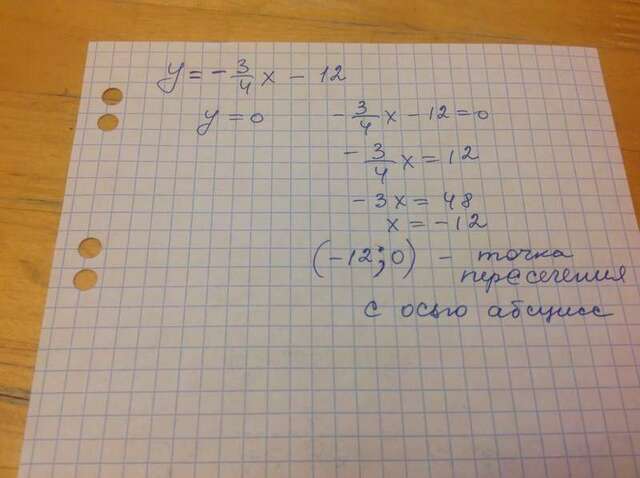 y = -3/4 x - 12
y = 0    -3/4 x - 12 = 0
-3/4 x = 12
-3x = 48
x = -12
(-12; 0) - точка
пересечения
с осью абсцисс